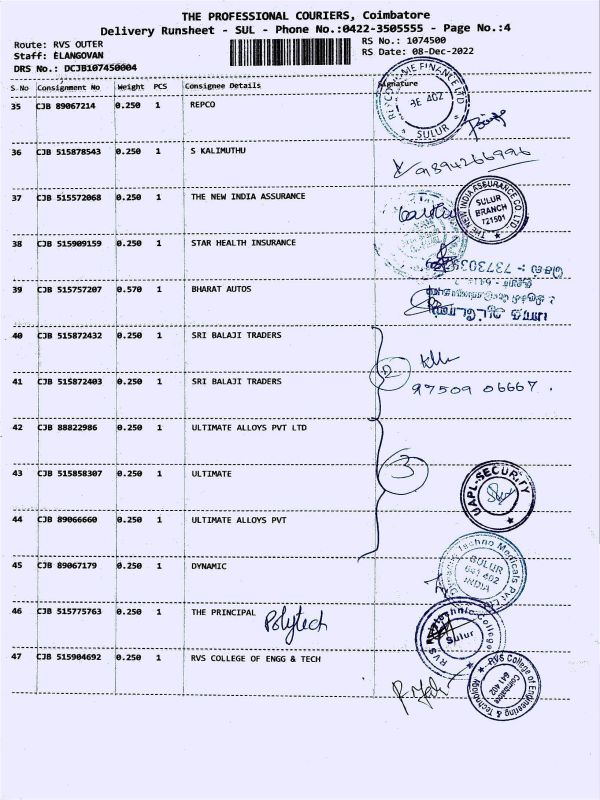 THE PROFESSIONAL COURIERS, Coimbatore
Delivery Runsheet - SUL - Phone No.:0422-3505555 - Page No.:4
Route: RVS OUTER
RS No.: 1074500
Staff: ELANGOVAN
RS Date: 08-Dec-2022
DRS No.: DCJB107450004
S.No Consignment No Weight PCS Consignee Details Signature
35 CJB 89067214 0.250 1 REPCO
REPCO HOME FINANCE LTD
SULUR
36 CJB 515878543 0.250 1 S KALIMUTHU
9894266996
37 CJB 515572068 0.250 1 THE NEW INDIA ASSURANCE
THE NEW INDIA ASSURANCE CO. LTD.
SULUR
BRANCH
721501
38 CJB 515909159 0.250 1 STAR HEALTH INSURANCE
39 CJB 515757207 0.570 1 BHARAT AUTOS
40 CJB 515872432 0.250 1 SRI BALAJI TRADERS
2
41 CJB 515872403 0.250 1 SRI BALAJI TRADERS
97509 06667.
42 CJB 88822986 0.250 1 ULTIMATE ALLOYS PVT LTD
3
43 CJB 515858307 0.250 1 ULTIMATE
UAPL-SECURITY
44 CJB 89066660 0.250 1 ULTIMATE ALLOYS PVT
45 CJB 89067179 0.250 1 DYNAMIC
Techno Medicals Pvt Ltd
SULUR
641 402
INDIA
46 CJB 515775763 0.250 1 THE PRINCIPAL
Polytech
RVS Polytechnic College
Sulur
47 CJB 515904692 0.250 1 RVS COLLEGE OF ENGG & TECH
RVS College of Engineering & Technology
Coimbatore
641 402